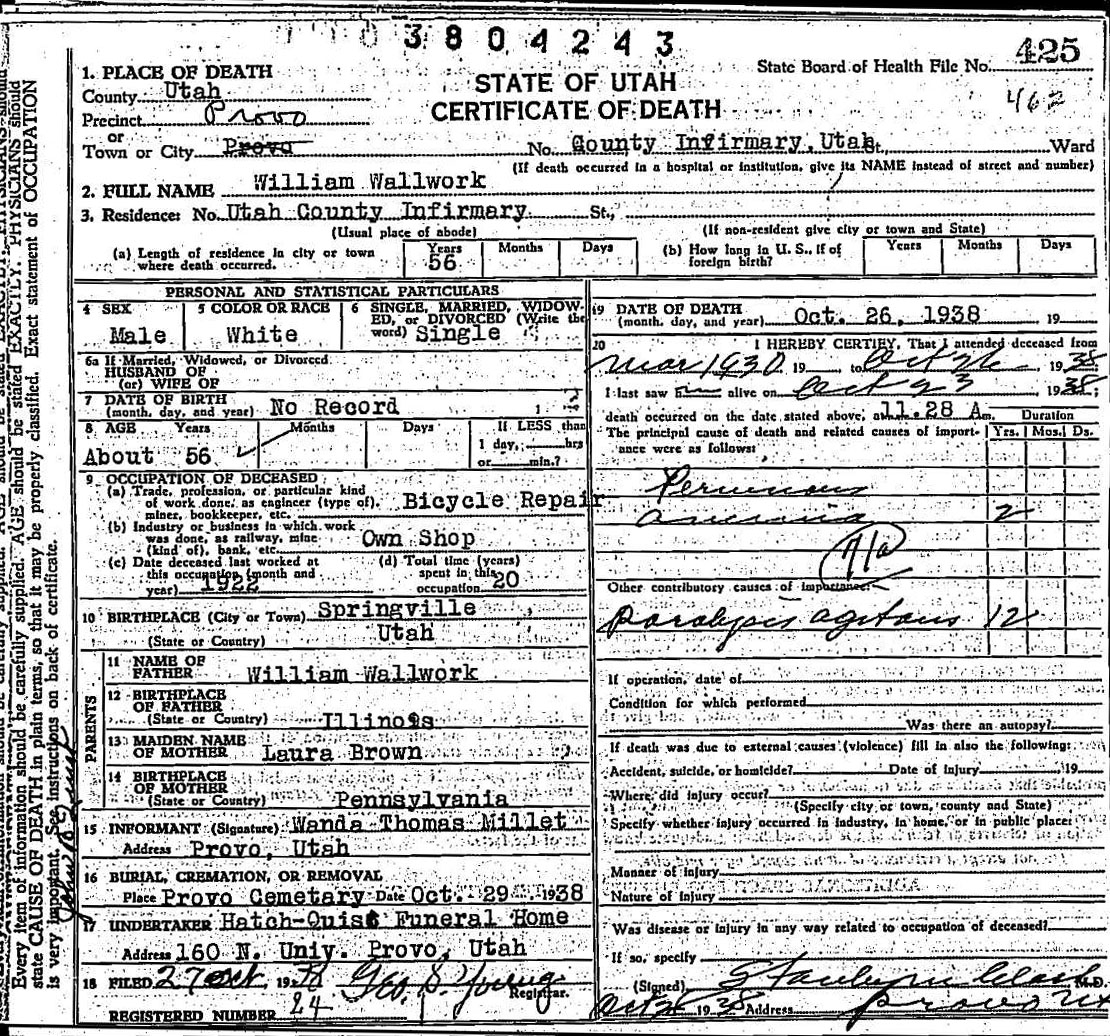 3804243
425
462
STATE OF UTAH
CERTIFICATE OF DEATH
State Board of Health File No.
1. PLACE OF DEATH
County Utah
Precinct Provo
or
Town or City Provo No. County Infirmary, Utah St., Ward
(If death occurred in a hospital or institution, give its NAME instead of street and number)
2. FULL NAME William Wallwork
3. Residence: No. Utah County Infirmary St.,
(Usual place of abode) (If non-resident give city or town and State)
(a) Length of residence in city or town where death occurred. Years 56 Months Days
(b) How long in U. S., if of foreign birth? Years Months Days
PERSONAL AND STATISTICAL PARTICULARS
4 SEX Male
5 COLOR OR RACE White
6 SINGLE, MARRIED, WIDOW-
ED, or DIVORCED (Write the
word) Single
6a If Married, Widowed, or Divorced
HUSBAND OF
(or) WIFE OF
7 DATE OF BIRTH
(month, day, and year) No Record 1
8 AGE Years Months Days If LESS than
1 day, hrs
or min.?
About 56
9 OCCUPATION OF DECEASED
(a) Trade, profession, or particular kind
of work done, as engineer (type of),
miner, bookkeeper, etc. Bicycle Repair
(b) Industry or business in which work
was done, as railway, mine
(kind of), bank, etc. Own Shop
(c) Date deceased last worked at
this occupation (month and
year) 1922
(d) Total time (years)
spent in this
occupation 20
10 BIRTHPLACE (City or Town) Springville
(State or Country) Utah
PARENTS
11 NAME OF
FATHER William Wallwork
12 BIRTHPLACE
OF FATHER
(State or Country) Illinois
13 MAIDEN NAME
OF MOTHER Laura Brown
14 BIRTHPLACE
OF MOTHER
(State or Country) Pennsylvania
15 INFORMANT (Signature) Wanda Thomas Millet
Address Provo, Utah
16 BURIAL, CREMATION, OR REMOVAL
Place Provo Cemetary Date Oct. 29 1938
17 UNDERTAKER Hatch-Quist Funeral Home
Address 160 N. Univ. Provo, Utah
18 FILED 27 Oct, 1938 Geo. S. Young
Registrar.
REGISTERED NUMBER 24
19 DATE OF DEATH
(month, day, and year) Oct. 26, 1938 19
20 I HEREBY CERTIFY, That I attended deceased from
Mar 1930 19 to Oct 26 1938
I last saw him alive on Oct 23 1938;
death occurred on the date stated above, at 11.28 A m. Duration
The principal cause of death and related causes of import-
ance were as follows: Yrs. Mos. Ds.
Pernicious
anemia 2
71a
Other contributory causes of importance:
Paralysis agitans 12
If operation, date of
Condition for which performed
Was there an autopsy?
If death was due to external causes (violence) fill in also the following:
Accident, suicide, or homicide? Date of injury 19
Where did injury occur?
(Specify city or town, county and State)
Specify whether injury occurred in industry, in home, or in public place:
Manner of injury
Nature of injury
Was disease or injury in any way related to occupation of deceased?
If so, specify
(Signed) M.D.
Oct 26 1938 Address Provo Ut
Every item of information should be carefully supplied. AGE should be stated EXACTLY. PHYSICIANS should
state CAUSE OF DEATH in plain terms, so that it may be properly classified. Exact statement of OCCUPATION
is very important. See instructions on back of certificate.